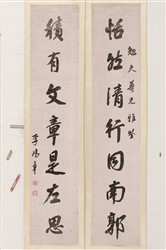 恬然清行同南郭
勉夫尊兄雅鉴
積有文章是左思
李鴻章